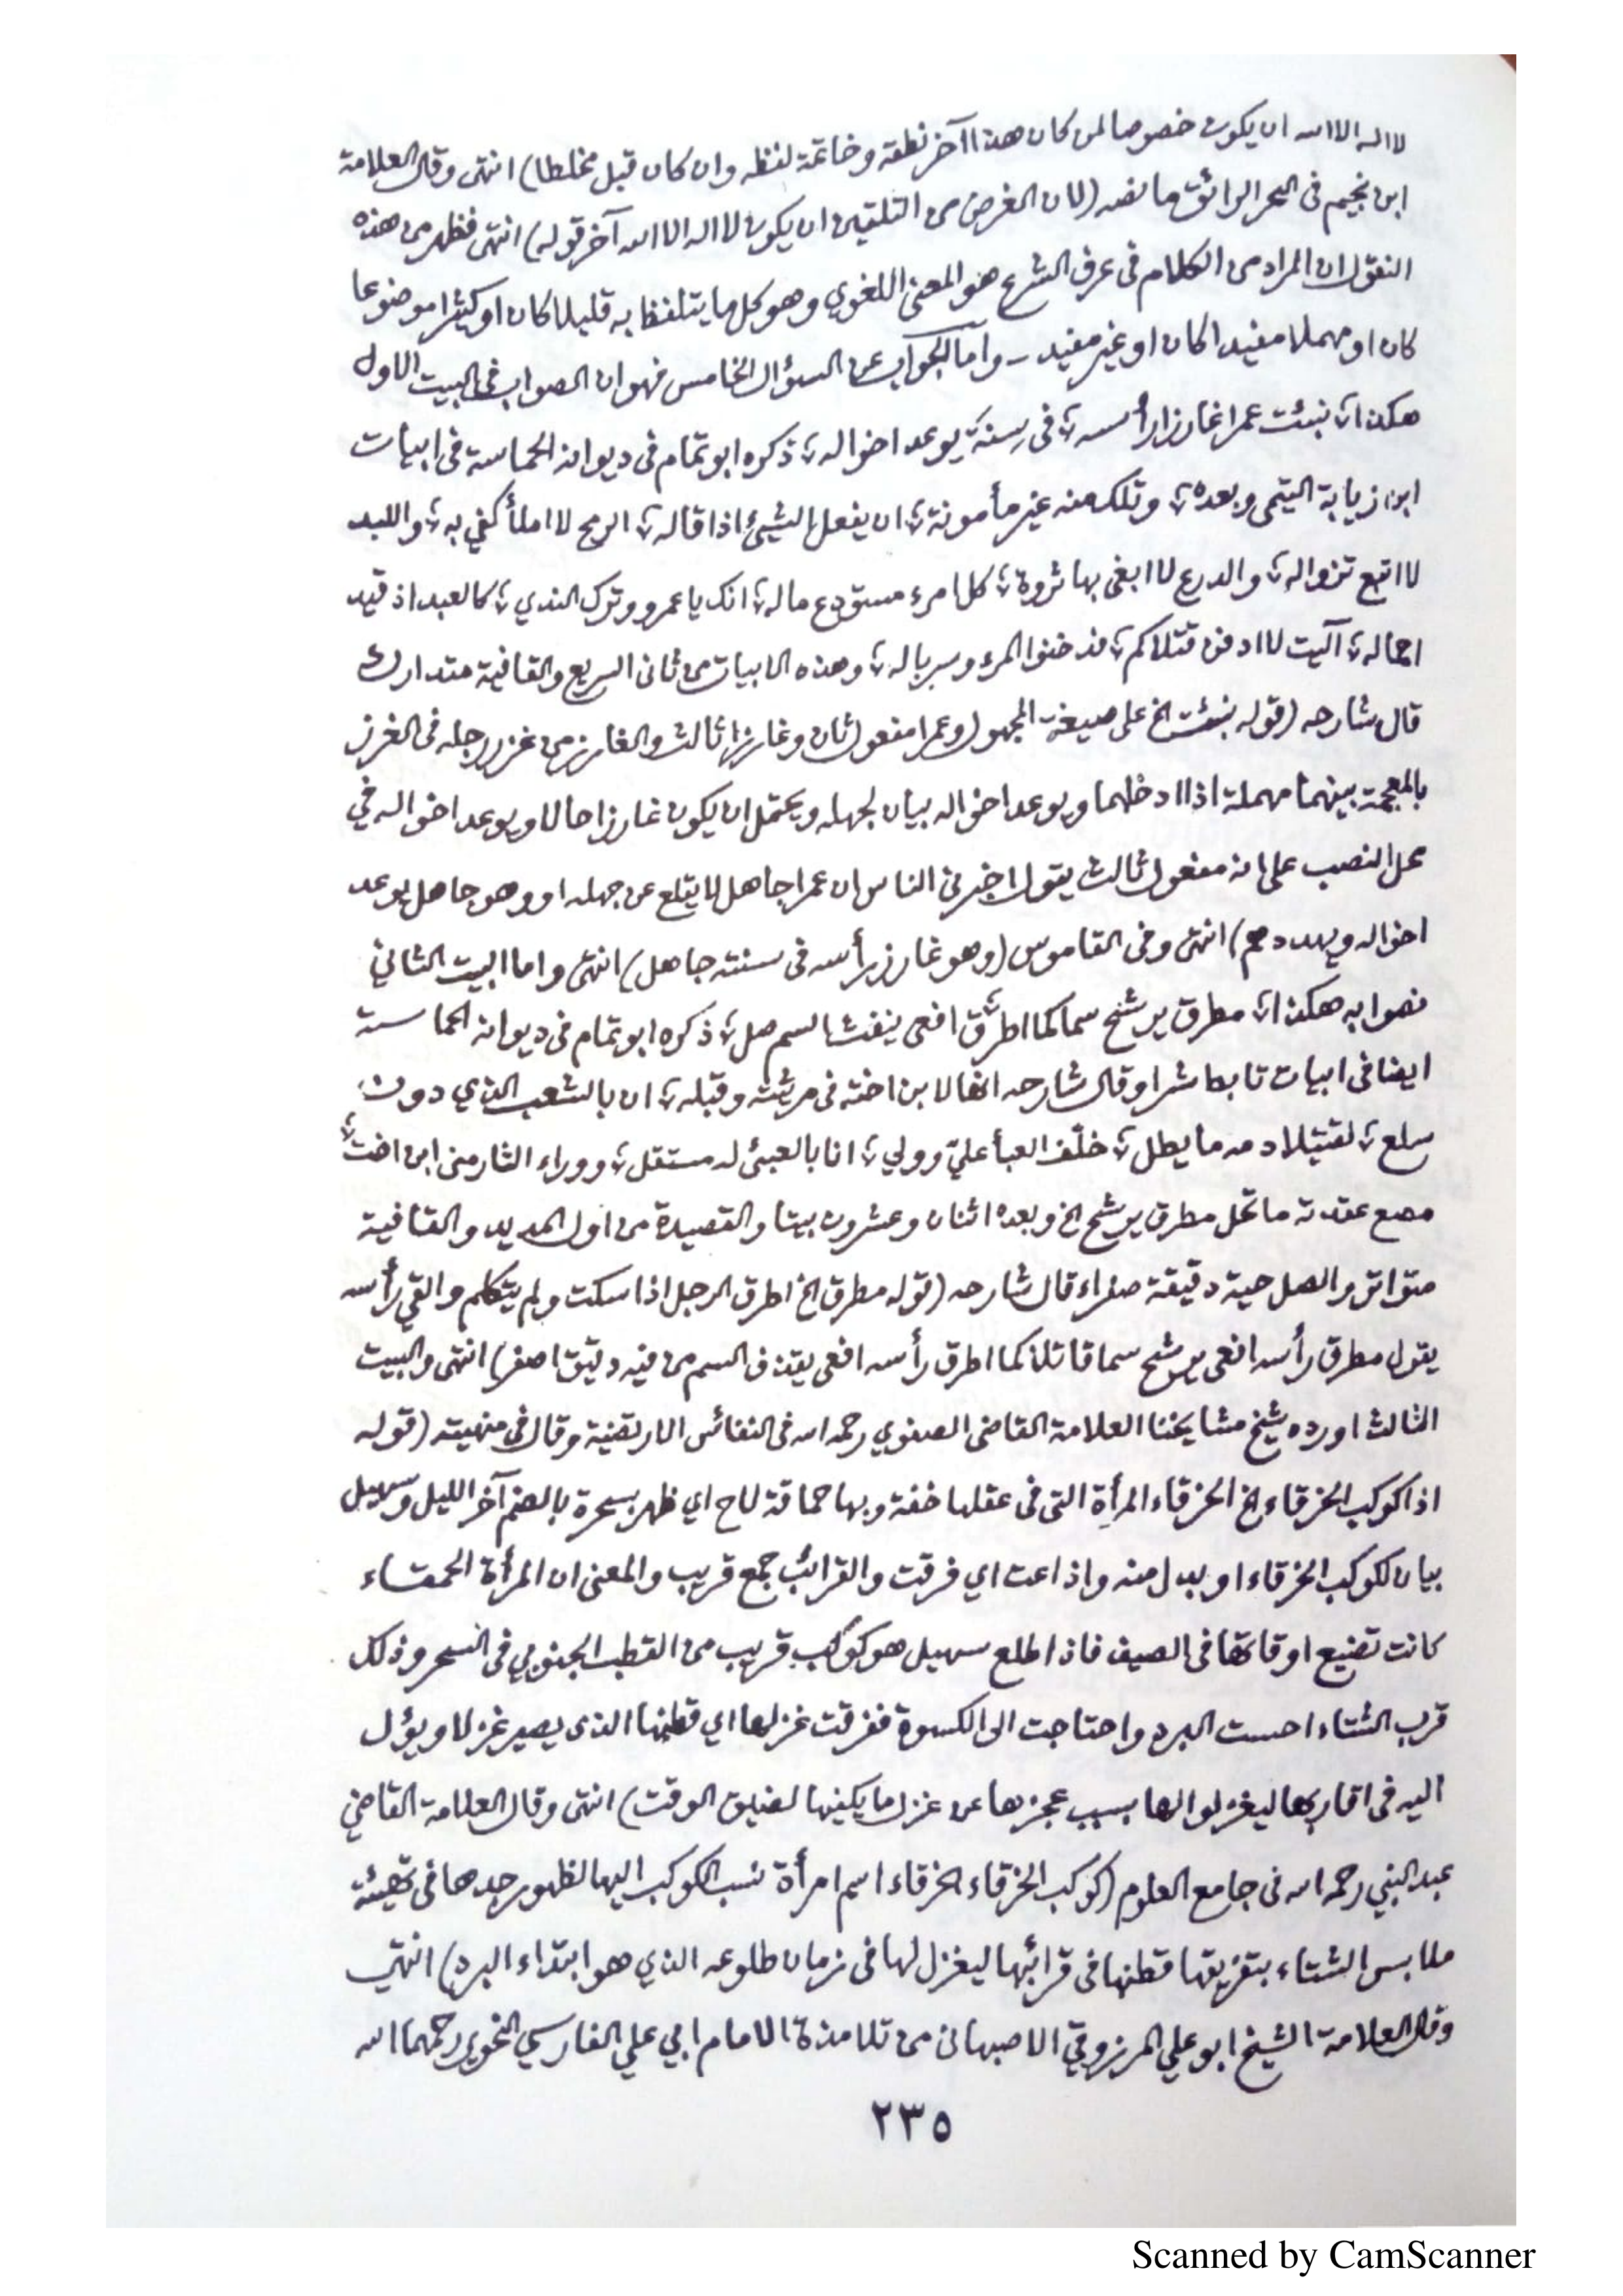 لا اله الا الله ان يكون خصوصا لمن كان هذا آخر نطقه وخاتمة لفظه وان كان قبل مخلطا) انتهى وقال العلامة
ابن نجيم فى البحر الرائق ما نصه (لان الغرض من التلقين ان يكون لا اله الا الله آخر قوله) انتهى فظهر من هذه
النقول ان المراد من الكلام فى عرف الشرع هو المعنى اللغوي وهو كل ما يتلفظ به قليلا كان او كثيرا موضوعا
كان او مهملا مفيدا كان او غير مفيد - واما الجواب عن السؤال الخامس فهو ان الصواب فى البيت الاول
هكذا، نبئت عمرا غارزا رأسه، فى سنة يوعد اخواله، ذكره ابو تمام فى ديوانه الحماسة فى ابيات
ابن زيابة التيمى وبعده، وتلك منه غير مأمونة، ان يفعل الشيئ اذا قاله، الرمح لا املأ كفي به، واللبد
لا اتبع تزواله، والدرع لا ابغى بها ثروة، كل امرء مستودع ماله، انك يا عمرو وترك الندي، كالعبد اذ قيد
اجماله، آليت لا ادفن قتلاكم، فدخنوا المرء وسرباله، وهذه الابيات من ثانى السريع والقافية متدارك
قال شارحه (قوله نبئت الخ على صيغة المجهول وعمرا مفعول ثان وغارزا ثالث والغارز من غرز رجله فى الغرز
بالمعجمة بينهما مهملة اذا ادخلهما ويوعد اخواله بيان لجهله ويحتمل ان يكون غارزا حالا ويوعد اخواله في
محل النصب على انه مفعول ثالث يقول اخبرنى الناس ان عمرا جاهل لا يقلع عن جهله او وهو جاهل يوعد
اخواله ويهددهم) انتهى وفى القاموس (وهو غارز رأسه فى سنته جاهل) انتهى واما البيت الثاني
فصوابه هكذا، مطرق يرشح سما كما اطرق، افعى ينفث السم صل، ذكره ابو تمام فى ديوانه الحماسة
ايضا فى ابيات تابط شرا وقال شارحه انها لابن اخته فى مرثيته وقبله، ان بالشعب الذي دون
سلع، لقتيلا دمه ما يطل، خلّف العبأ عليّ وولي، انا بالعبئ له مستقل، ووراء الثار منى ابن اخت،
مصع عقدته ما تحل مطرق يرشح الخ وبعده اثنان وعشرون بيتا والقصيدة من اول المديد والقافية
متواتر والصل حية دقيقة صفراء قال شارحه (قوله مطرق الخ اطرق الرجل اذا سكت ولم يتكلم والقي رأسه
يقول مطرق رأسه افعى يرشح سما قاتلا كما اطرق رأسه افعى يقذف السم من فيه دقيق اصفر) انتهى والبيت
الثالث اورده شيخ مشايخنا العلامة القاضى الصفوي رحمه الله فى النفائس الارتضية وقال فى منهيته (قوله
اذا كوكب الخرقاء الخ الخرقاء المرأة التى فى عقلها خفة وبها حماقة لاح اي ظهر بسحرة بالضم آخر الليل وسهيل
بيان لكوكب الخرقاء او بدل منه واذاعت اي فرقت والقرائب جمع قريب والمعنى ان المرأة الحمقاء
كانت تضيع اوقاتها فى الصيف فاذا طلع سهيل هو كوكب قريب من القطب الجنوبي فى السحر وذلك
قرب الشتاء احست البرد واحتاجت الى الكسوة ففرقت غزلها اي قطنها الذى يصير غزلا ويؤل
اليه فى اقاربها ليغزلوا لها بسبب عجزها عن غزل ما يكفيها لضيق الوقت) انتهى وقال العلامة القاضي
عبد النبي رحمه الله فى جامع العلوم (كوكب الخرقاء الخرقاء اسم امرأة نسب الكوكب اليها لظهور جدها فى تهيئة
ملابس الشتاء بتفريقها قطنها فى قرائبها ليغزل لها فى زمان طلوعه الذي هو ابتداء البرد) انتهى
وقال العلامة الشيخ ابو علي المرزوقي الاصبهانى من تلامذة الامام ابي علي الفارسي النحوي رحمهما الله
٢٣٥
Scanned by CamScanner